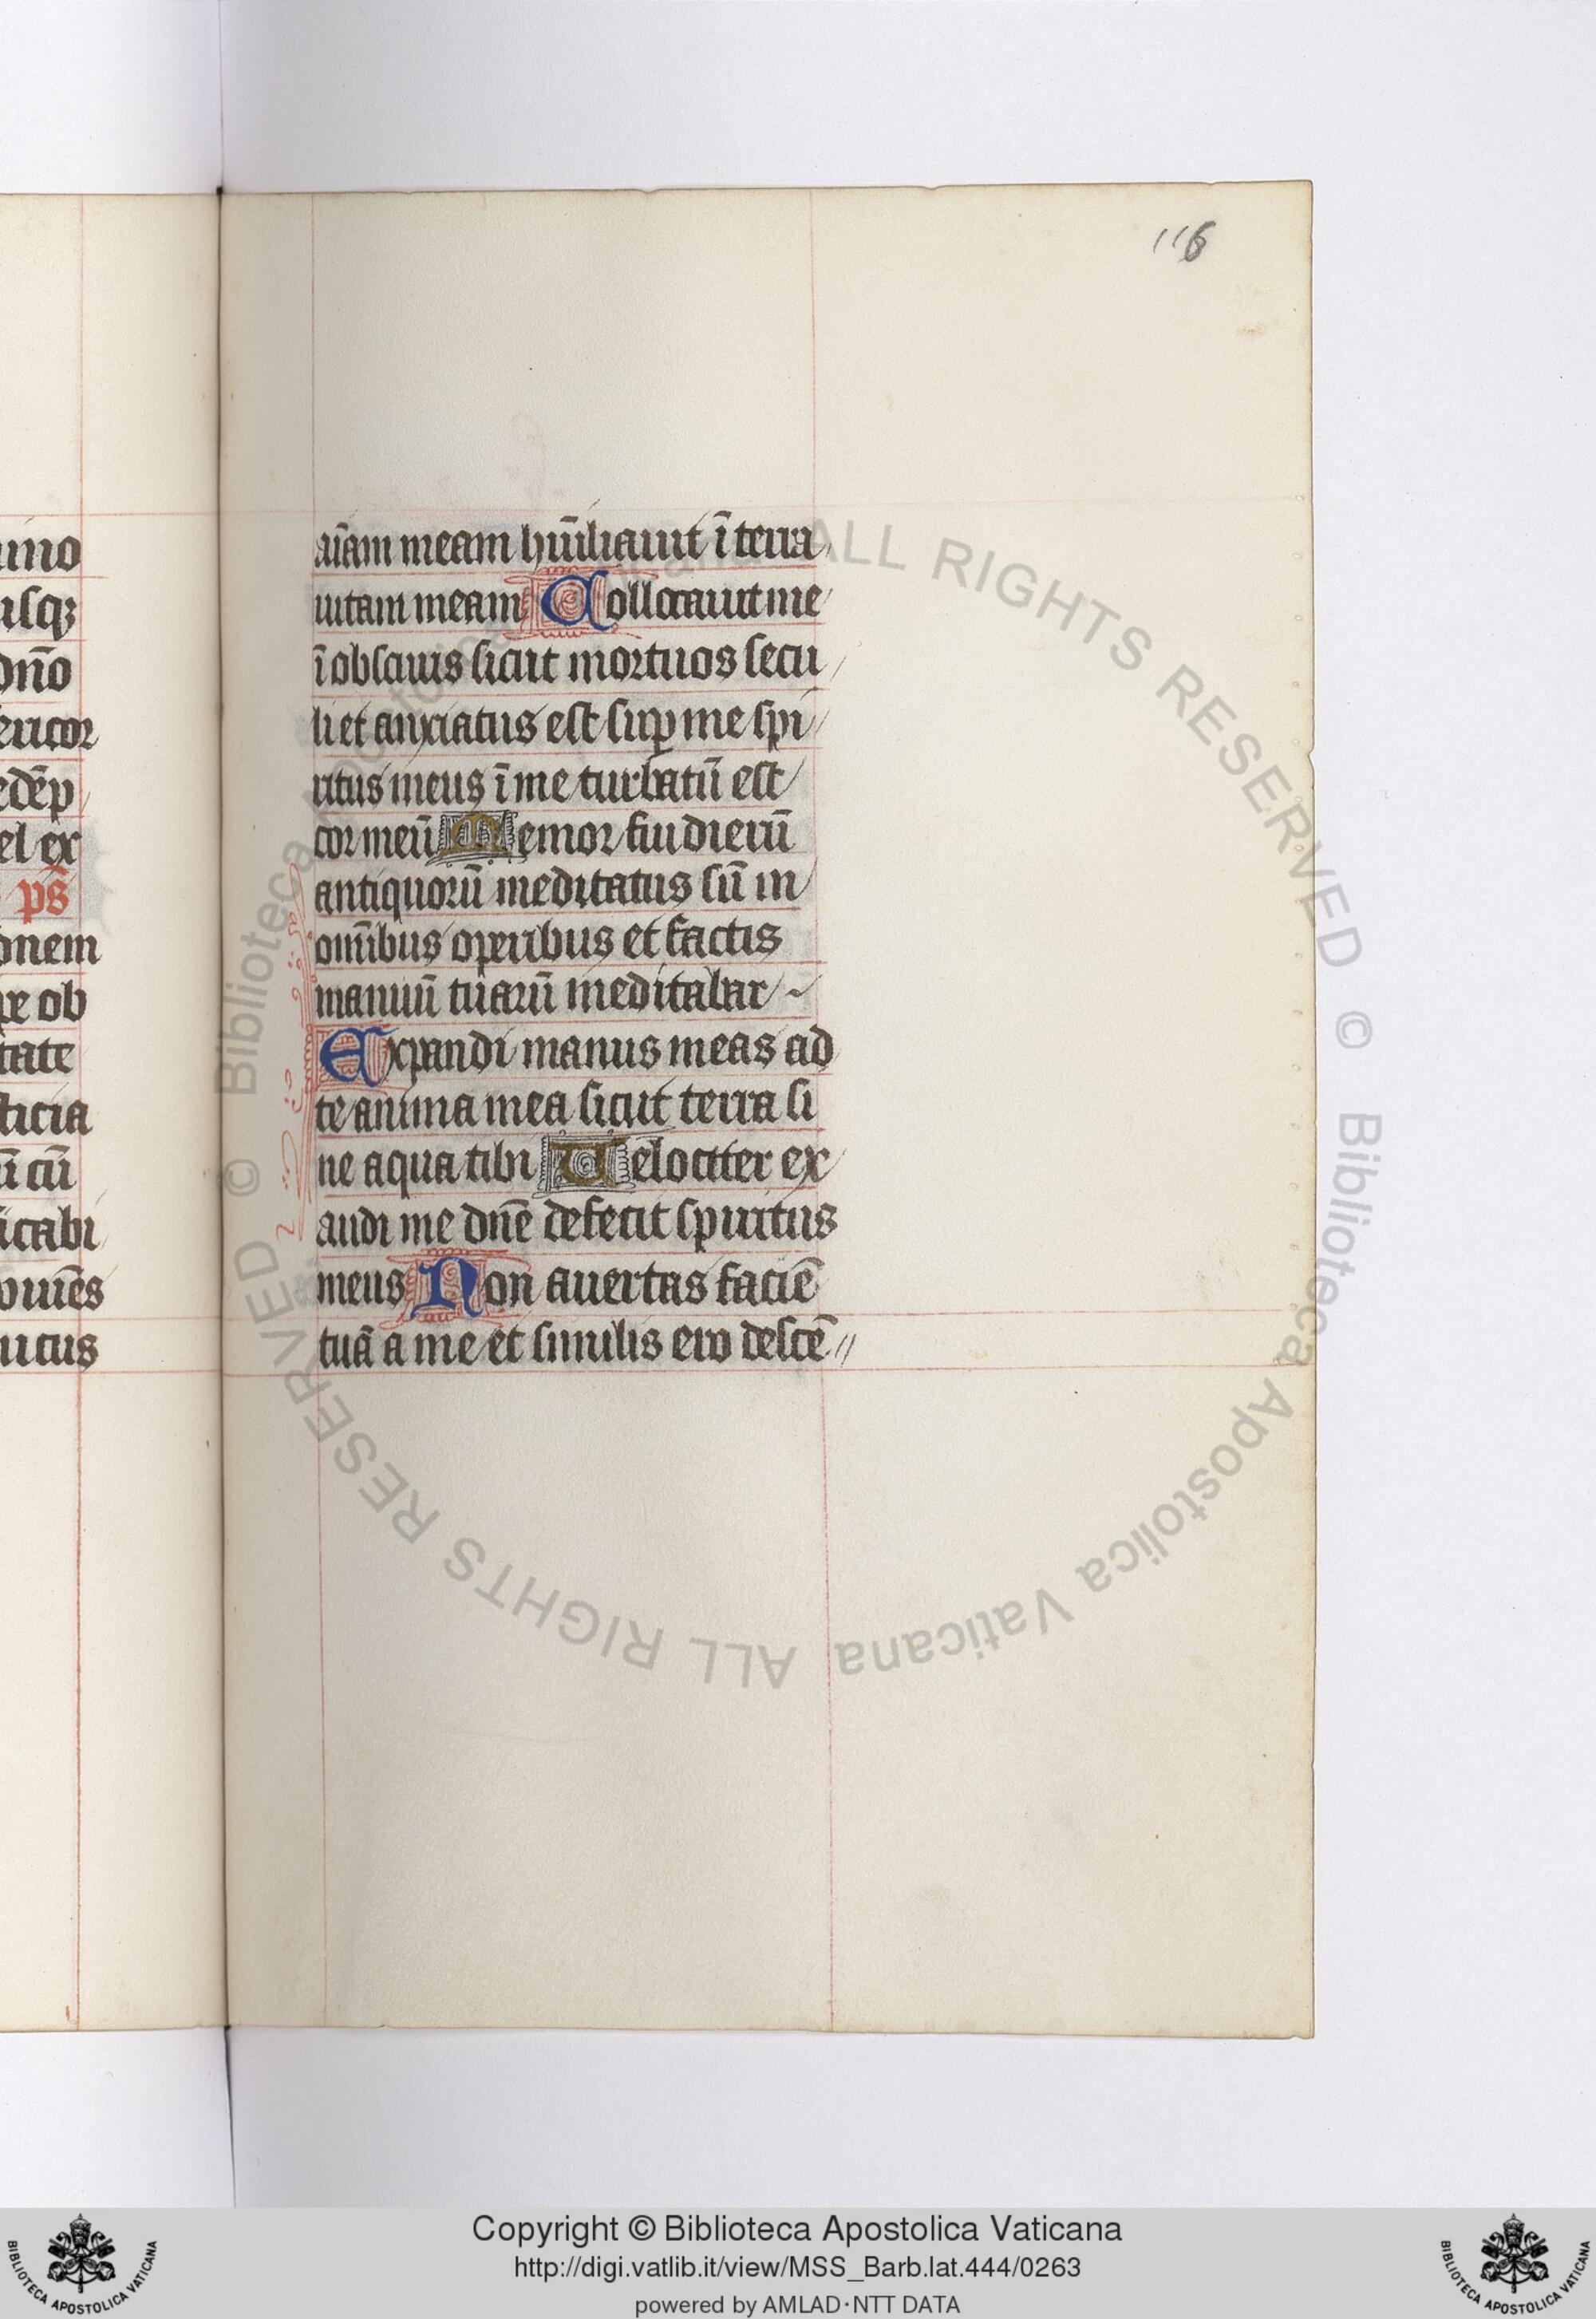 116
uino
usqꝫ
dn̄o
ericor
edēp
el ex
ps̄
onem
re ob
tate
sticia
ū cū
icabi
viuēs
ucus
aīam meam hūiliauit ī terra
uitam meam Collocauit me
ī obscuris sicut mortuos secu
li et anxiatus est suꝑ me spi
ritus meus ī me turbatū est
cor meū Memor fui dierū
antiquorū meditatus sū in
om̄ibus operibus et factis
manuū tuarū meditabar
Expandi manus meas ad
te anima mea sicut terra si
ne aqua tibi Uelociter ex
audi me dn̄e defecit spiritus
meus Non auertas faciē
tuā a me et similis ero descē
Copyright © Biblioteca Apostolica Vaticana
http://digi.vatlib.it/view/MSS_Barb.lat.444/0263
powered by AMLAD·NTT DATA
BIBLIOTECA APOSTOLICA VATICANA
BIBLIOTECA APOSTOLICA VATICANA
© Biblioteca Apostolica Vaticana ALL RIGHTS RESERVED © Biblioteca Apostolica Vaticana ALL RIGHTS RESERVED